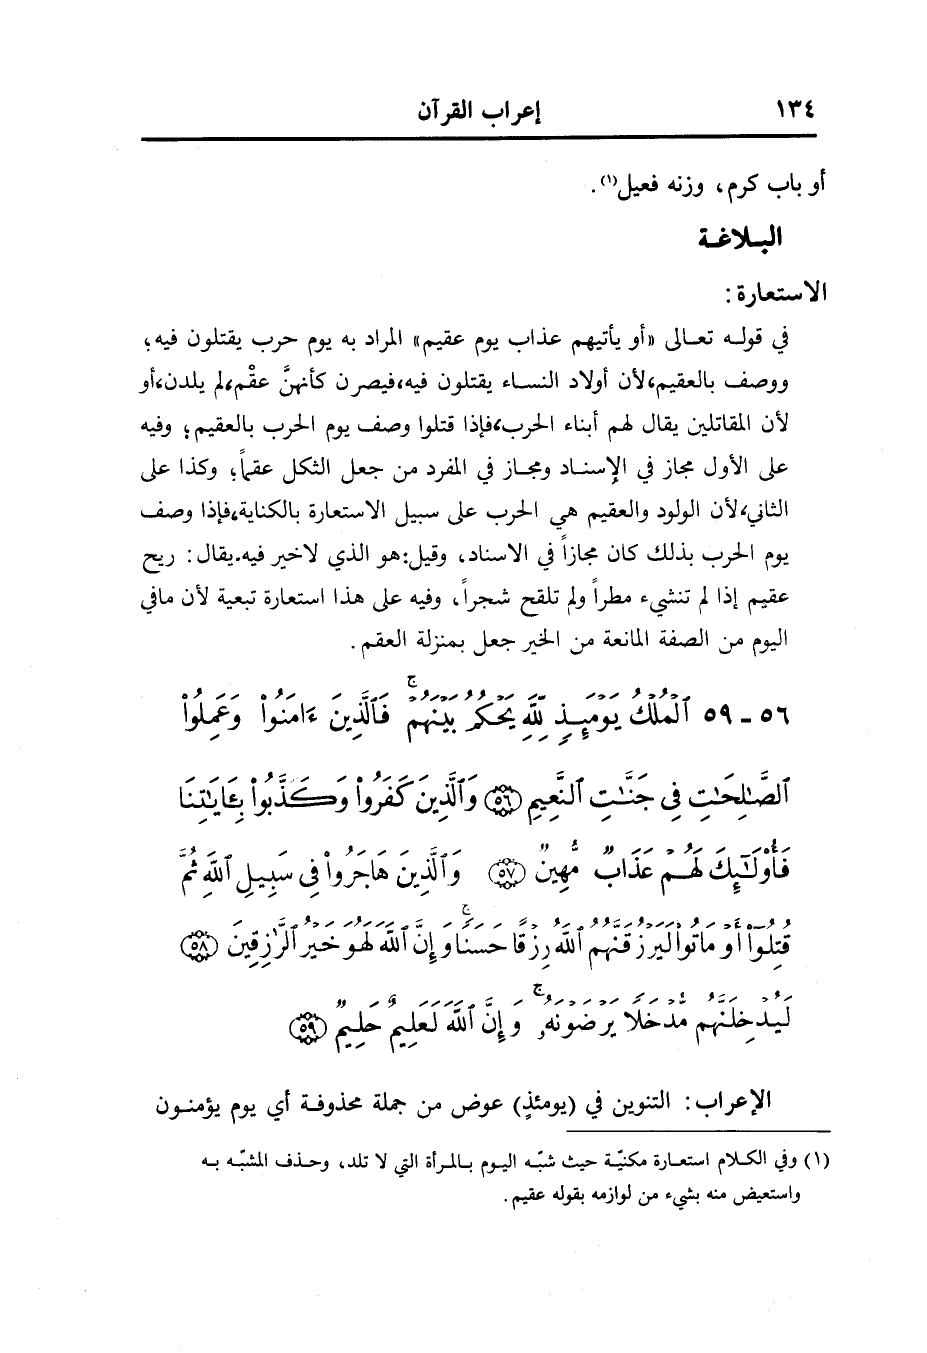 ١٣٤ إعراب القرآن
أو باب كرم، وزنه فعيل(١).
البـلاغـة
الاستعارة:
في قولـه تعـالى «أو يأتيهم عذاب يوم عقيم» المراد به يوم حرب يقتلون فيه؛
ووصف بالعقيم،لأن أولاد النسـاء يقتلون فيه،فيصرن كأنهنَّ عقْم،لم يلدن،أو
لأن المقاتلين يقال لهم أبناء الحرب،فإذا قتلوا وصف يوم الحرب بالعقيم؛ وفيه
على الأول مجاز في الإسنـاد ومجـاز في المفرد من جعل الثكل عقماً؛ وكذا على
الثاني،لأن الولود والعقيم هي الحرب على سبيل الاستعارة بالكناية،فإذا وصف
يوم الحرب بذلك كان مجازاً في الاسناد، وقيل:هو الذي لاخير فيه.يقال: ريح
عقيم إذا لم تنشيء مطراً ولم تلقح شجراً، وفيه على هذا استعارة تبعية لأن مافي
اليوم من الصفة المانعة من الخير جعل بمنزلة العقم.
٥٦ - ٥٩ ٱلْمُلْكُ يَوْمَئِذٍ لِّلَّهِ يَحْكُمُ بَيْنَهُمْ ۚ فَٱلَّذِينَ ءَامَنُوا۟ وَعَمِلُوا۟
ٱلصَّـٰلِحَـٰتِ فِى جَنَّـٰتِ ٱلنَّعِيمِ ﴿٥٦﴾ وَٱلَّذِينَ كَفَرُوا۟ وَكَذَّبُوا۟ بِـَٔايَـٰتِنَا
فَأُو۟لَـٰٓئِكَ لَهُمْ عَذَابٌ مُّهِينٌ ﴿٥٧﴾ وَٱلَّذِينَ هَاجَرُوا۟ فِى سَبِيلِ ٱللَّهِ ثُمَّ
قُتِلُوٓا۟ أَوْ مَاتُوا۟ لَيَرْزُقَنَّهُمُ ٱللَّهُ رِزْقًا حَسَنًا ۚ وَإِنَّ ٱللَّهَ لَهُوَ خَيْرُ ٱلرَّٰزِقِينَ ﴿٥٨﴾
لَيُدْخِلَنَّهُم مُّدْخَلًا يَرْضَوْنَهُۥ ۚ وَإِنَّ ٱللَّهَ لَعَلِيمٌ حَلِيمٌ ﴿٥٩﴾
الإعراب: التنوين في (يومئذٍ) عوض من جملة محذوفـة أي يوم يؤمنـون
(١) وفي الكـلام استعـارة مكنيّـة حيث شبّـه اليـوم بـالمـرأة التي لا تلد، وحـذف المشبّـه بـه
واستعيض منه بشيء من لوازمه بقوله عقيم.